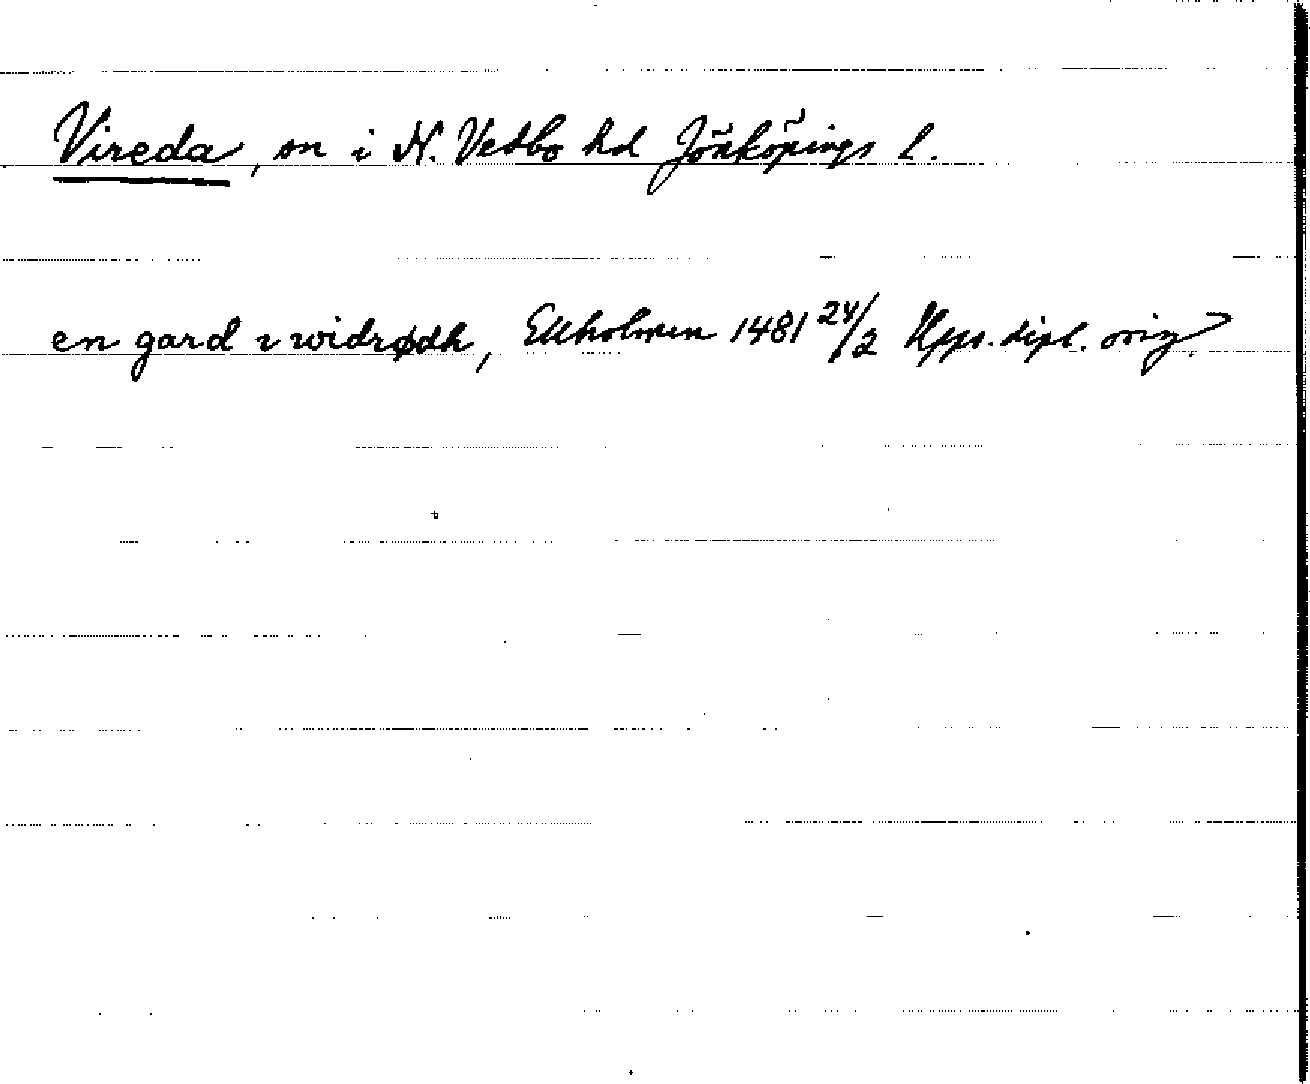 Vireda, sn i N. Vedbo hd Jönköpings l.
en gard i widrødh, Ekholmen 1481 24/2 Upps. dipl. orig.